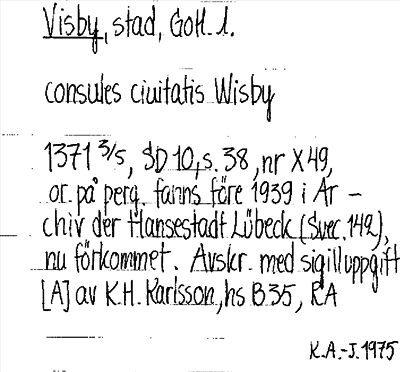 Visby, stad, Gotl. l.
consules ciuitatis Wisby
1371 3/5, SD 10, s. 38, nr X 49,
or. på perg. fanns före 1939 i Ar-
chiv der Hansestadt Lübeck (Svec. 142),
nu förkommet. Avskr. med sigilluppgift
[A] av K.H. Karlsson, hs B 35, RA
K.A.-J. 1975